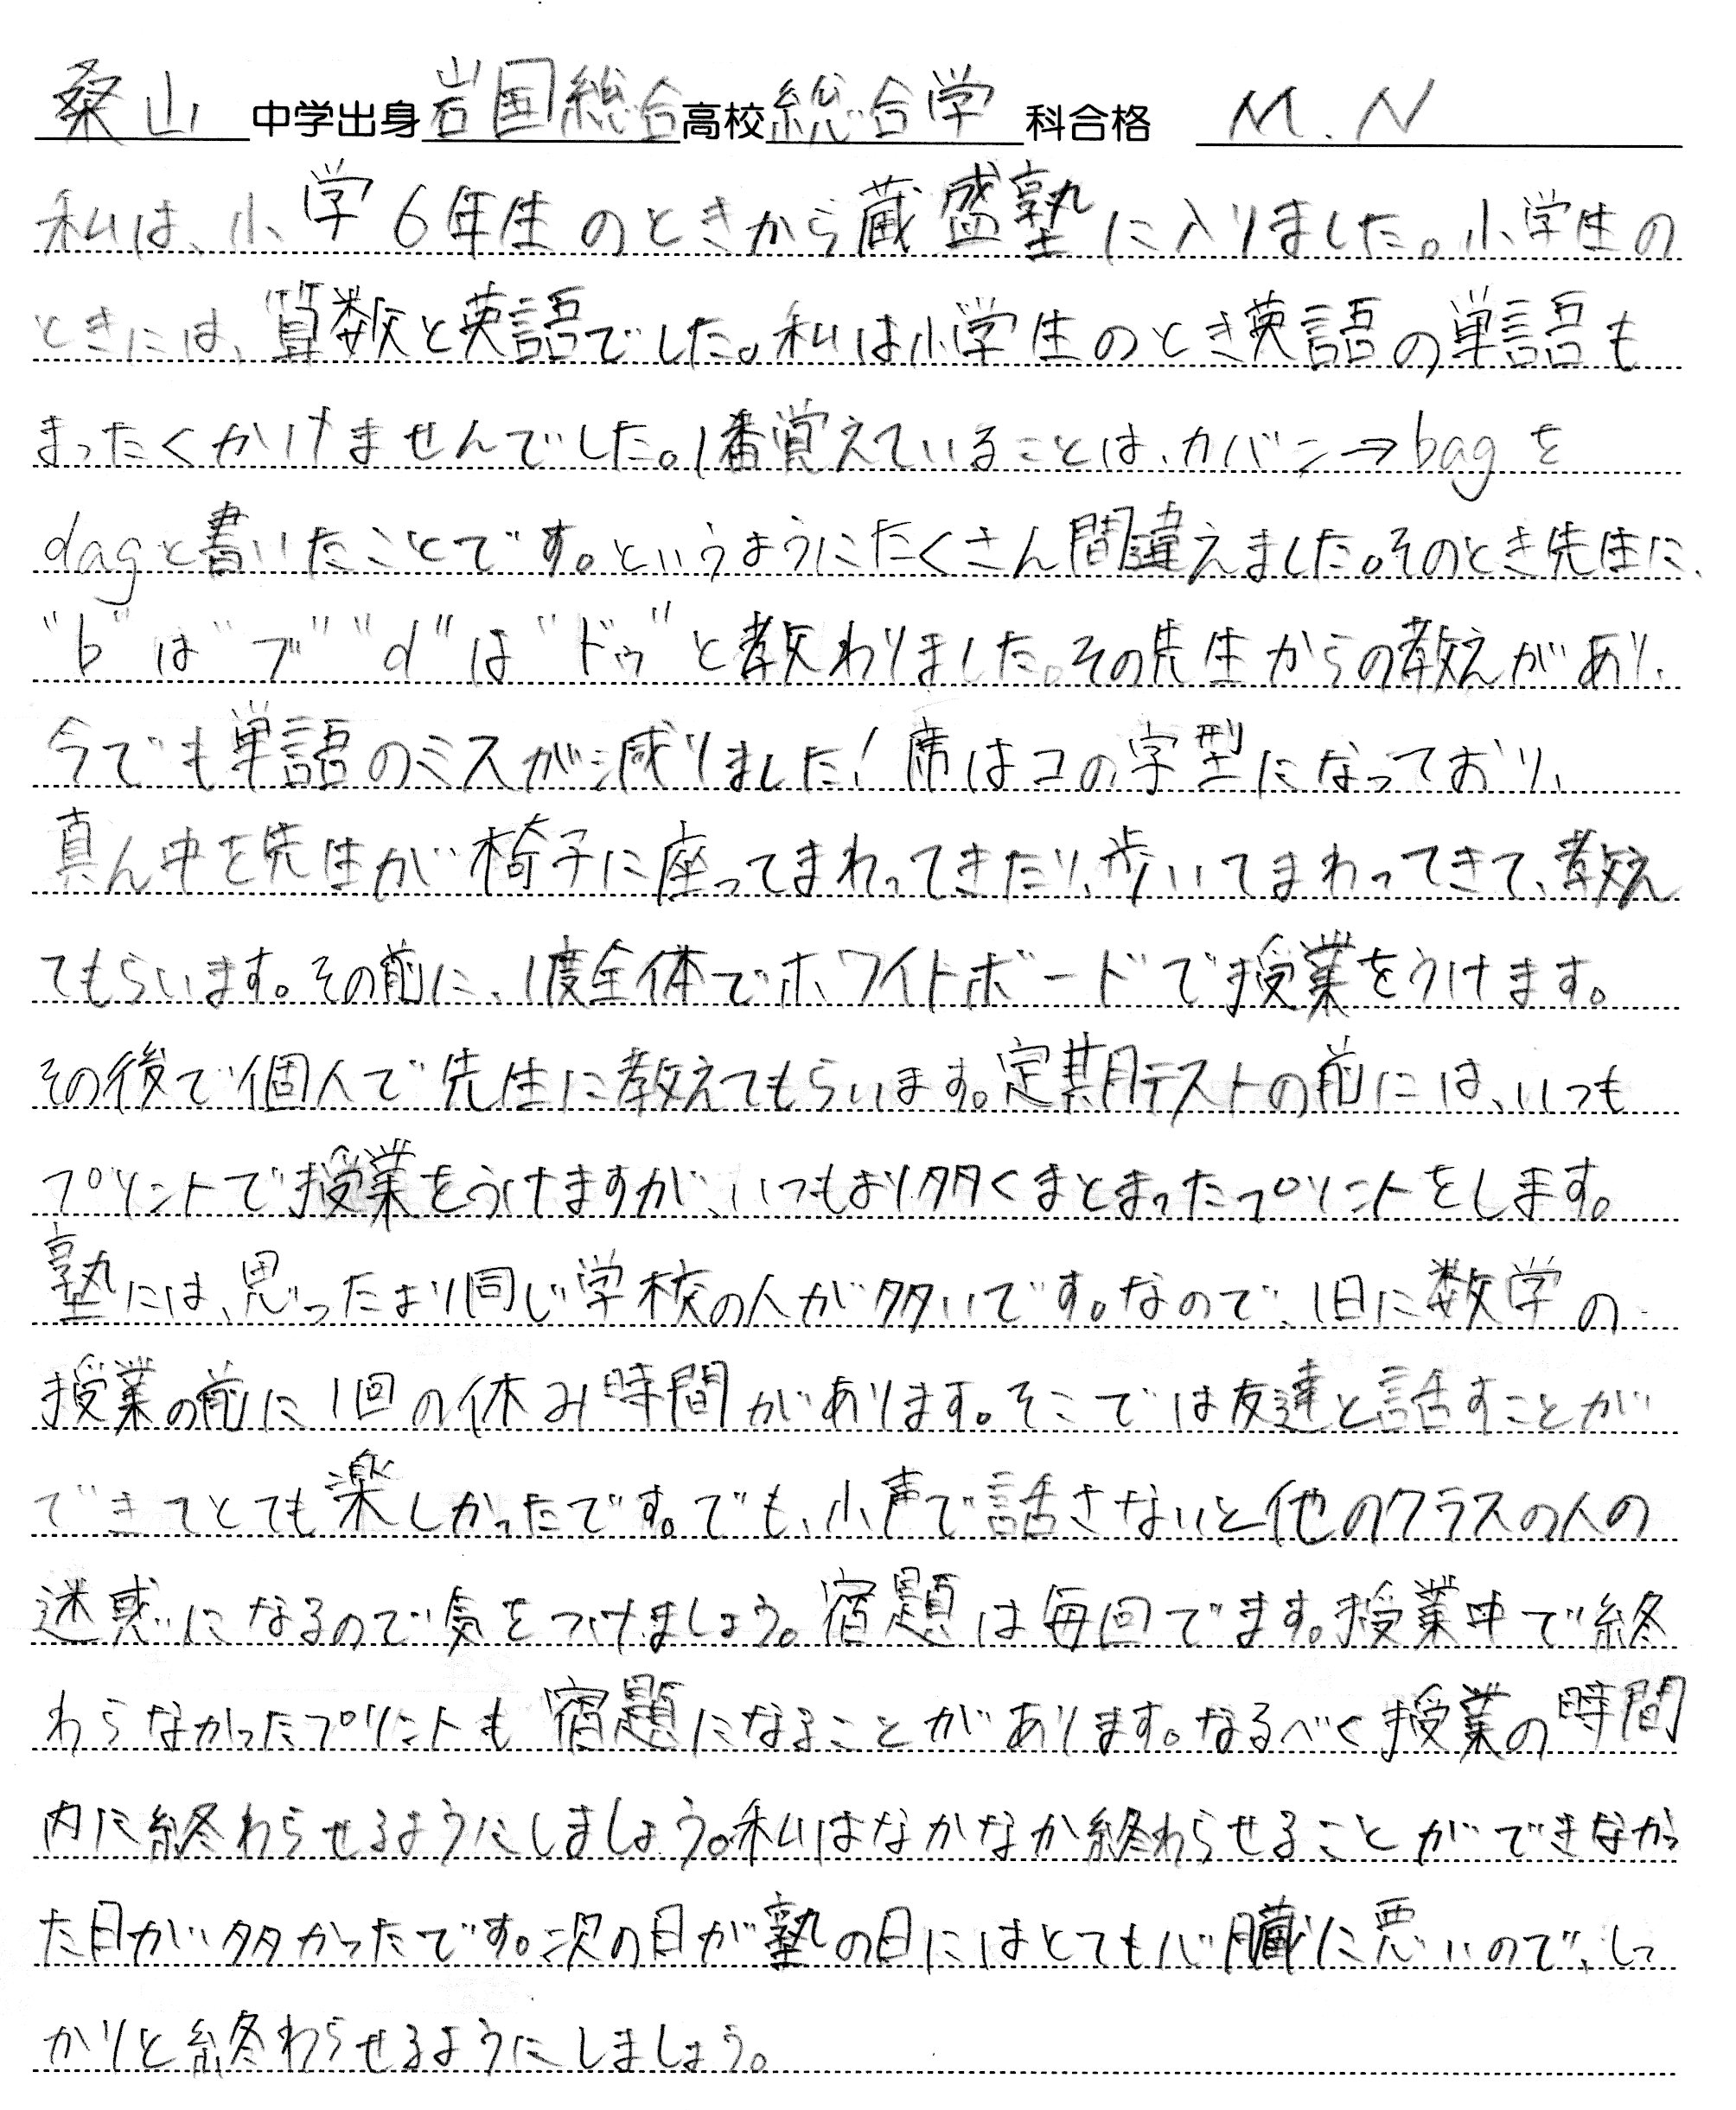 桑山中学出身岩国総合高校総合学科合格 M.N
私は、小学6年生のときから蔵盛塾に入りました。小学生の
ときには、算数と英語でした。私は小学生のとき英語の単語も
まったくかけませんでした。1番覚えていることは、カバン→bagを
dagと書いたことです。というようにたくさん間違えました。そのとき先生に、
"b"は"ブ""d"は"ドゥ"と教わりました。その先生からの教えがあり、
今でも単語のミスが減りました！席はコの字型になっており、
真ん中を先生が椅子に座ってまわってきたり、歩いてまわってきて、教え
てもらいます。その前に、1度全体でホワイトボードで授業をうけます。
その後で個人で先生に教えてもらいます。定期テストの前には、いつも
プリントで授業をうけますが、いつもより多くまとまったプリントをします。
塾には、思ったより同じ学校の人が多いです。なので、1日に数学の
授業の前に1回の休み時間があります。そこでは友達と話すことが
できてとても楽しかったです。でも、小声で話さないと他のクラスの人の
迷惑になるので気をつけましょう。宿題は毎回でます。授業中で終
わらなかったプリントも宿題になることがあります。なるべく授業の時間
内に終わらせるようにしましょう。私はなかなか終わらせることができなかっ
た日が多かったです。次の日が塾の日にはとても心臓に悪いので、しっ
かりと終わらせるようにしましょう。